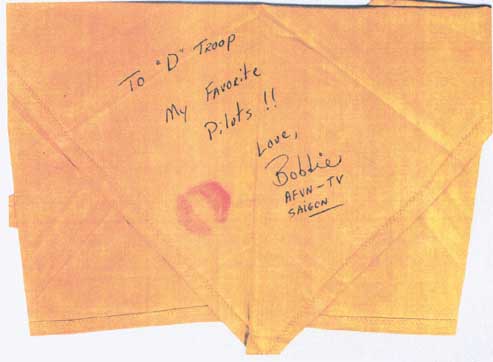 To "D" Troop
My Favorite
Pilots !!
Love,
Bobbie
AFVN-TV
SAIGON